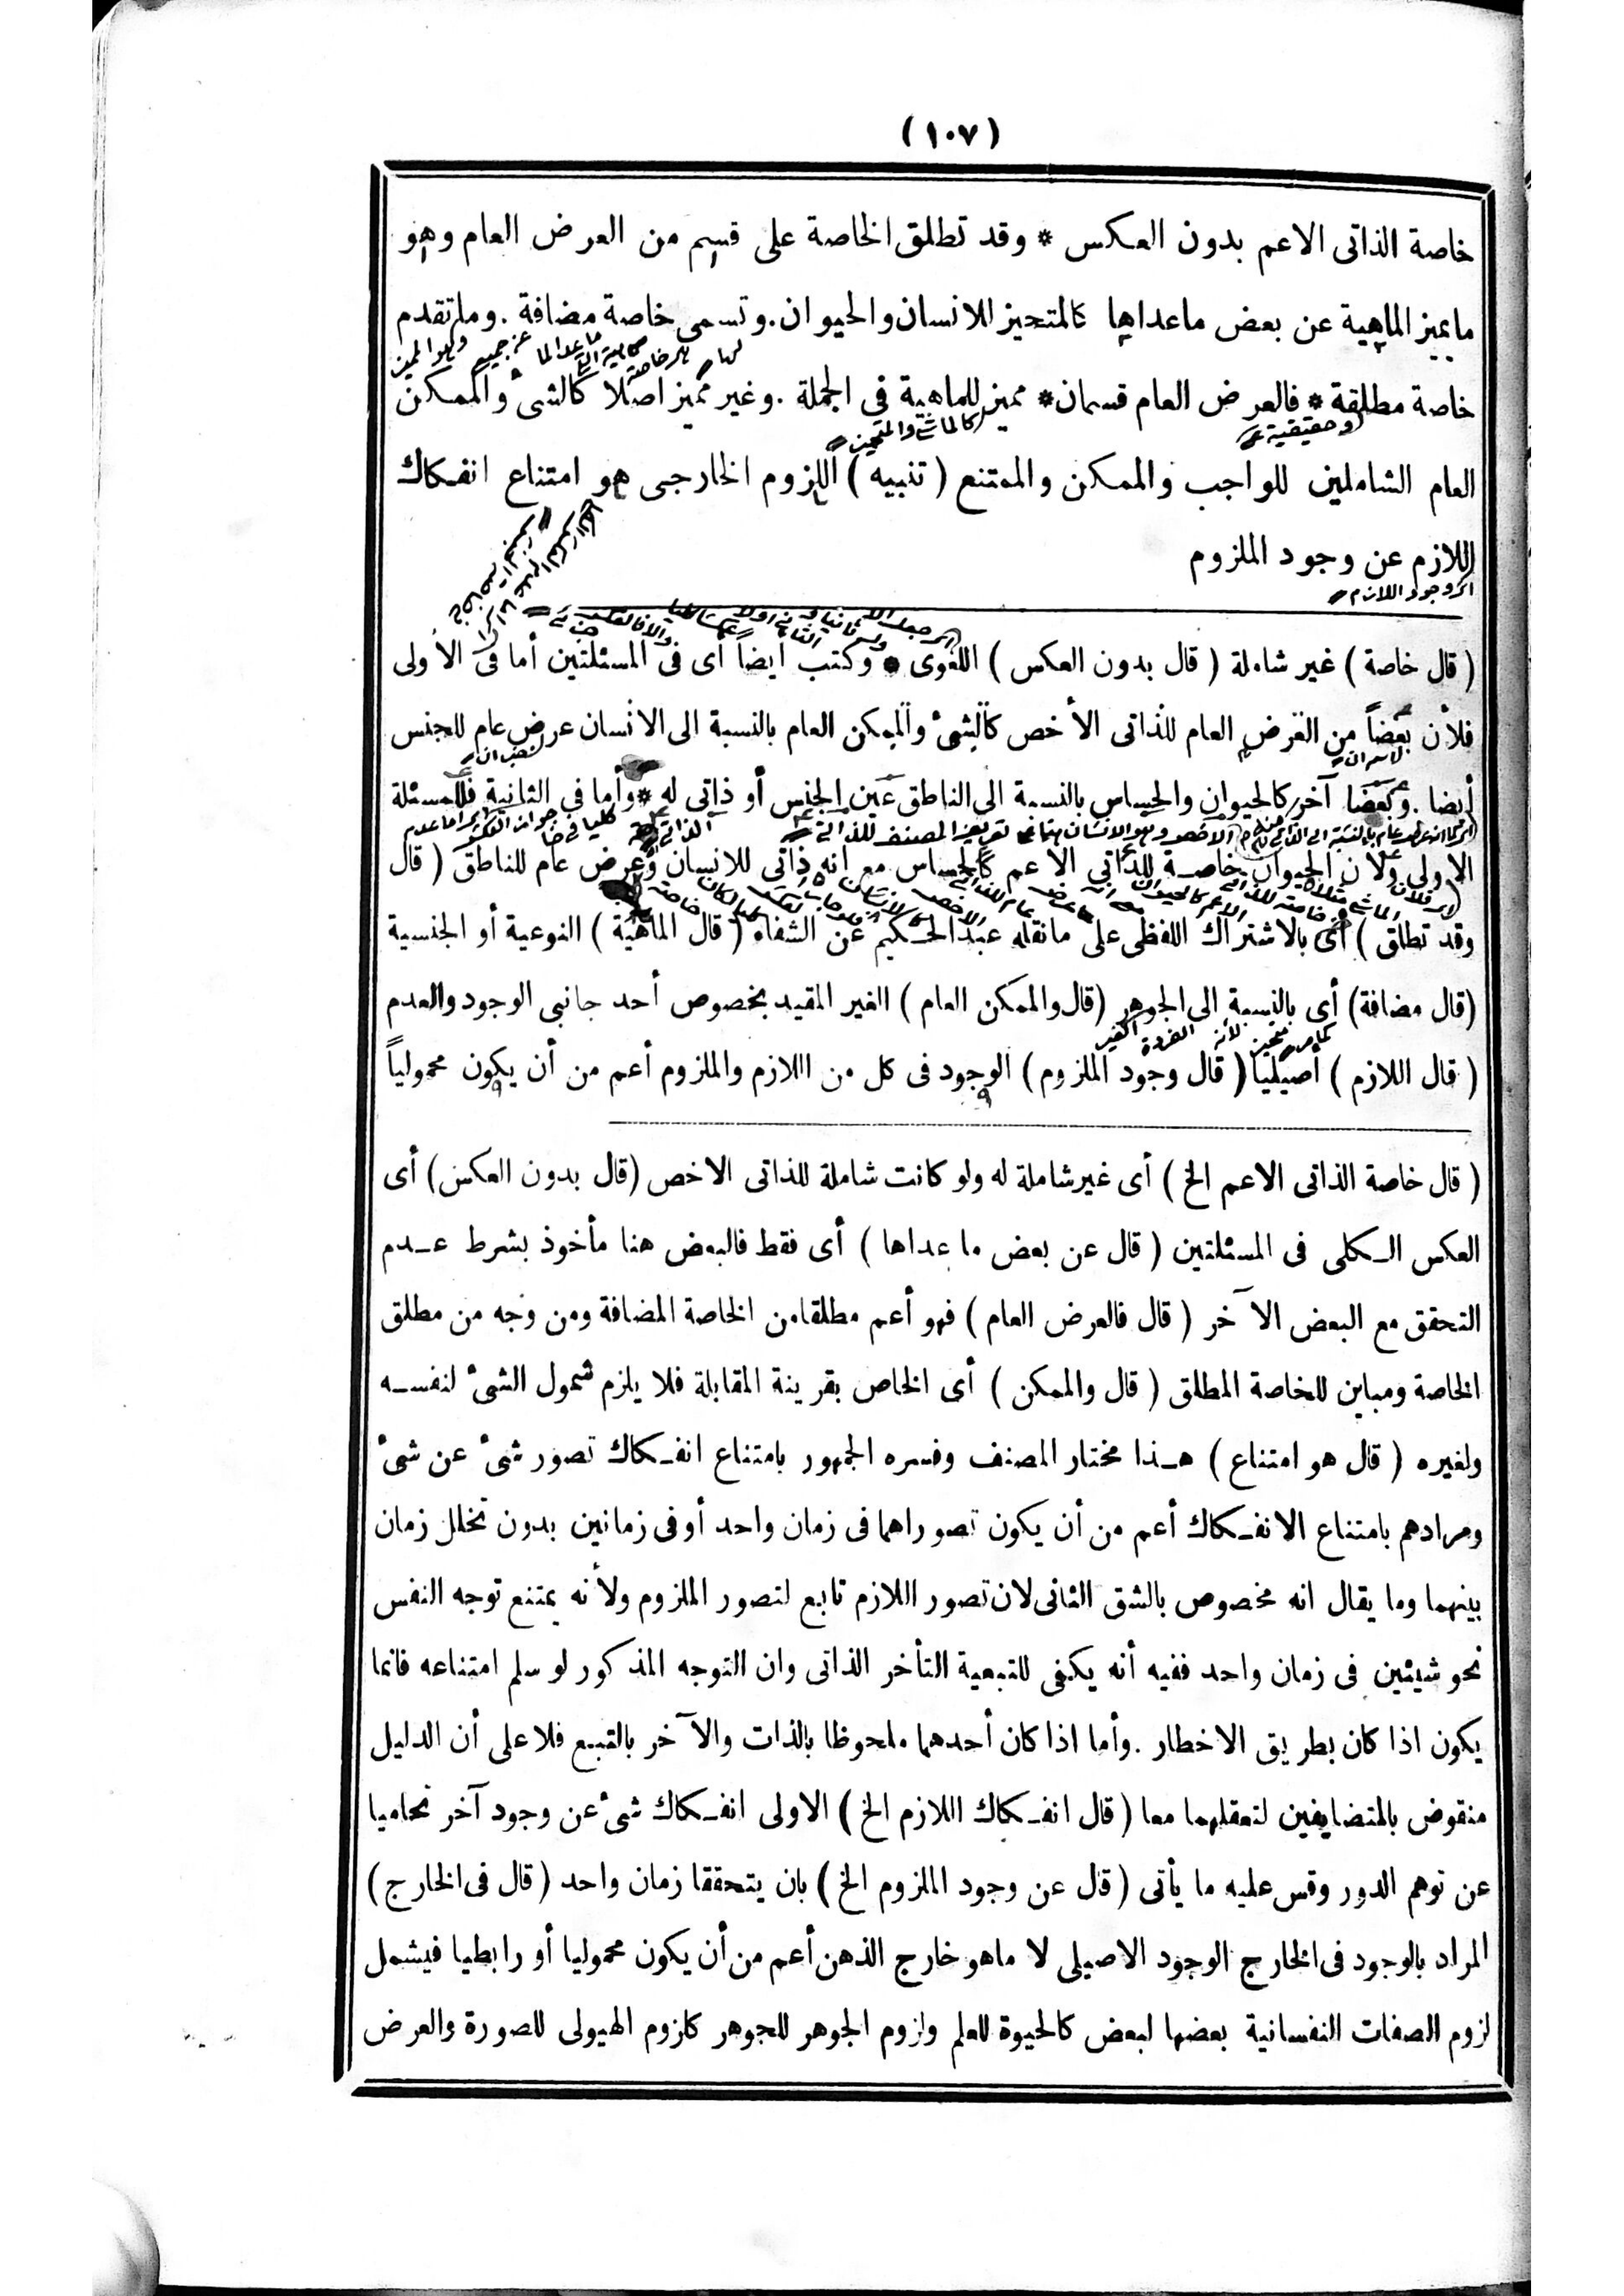 (١٠٧)
خاصة الذاتى الاعم بدون العكس * وقد تطلق الخاصة على قسم من العرض العام وهو
ما يميز الماهية عن بعض ماعداها كالمتحيز للانسان والحيوان . وتسمى خاصة مضافة . وما تقدم
خاصة مطلقة * فالعرض العام قسمان * مميز للماهية فى الجملة . وغير مميز اصلا كالشئ والممكن
وحقيقية
كالماشى والمتحيز
العام الشاملين للواجب والممكن والممتنع ( تنبيه ) اللزوم الخارجى هو امتناع انفكاك
اللازم عن وجود الملزوم
( قال خاصة ) غير شاملة ( قال بدون العكس ) اللغوى * وكتب ايضاً أى فى المسئلتين أما فى الأولى
فلأن بعضاً من العرض العام للذاتى الأخص كالشئ والممكن العام بالنسبة الى الانسان عرض عام للجنس
أيضا . وبعضا آخر كالحيوان والحساس بالنسبة الى الناطق عين الجنس أو ذاتى له * وأما فى الثانية فللمسئلة
الاولى ولأن الحيوان خاصة للذاتى الاعم كالحساس مع انه ذاتى للانسان وعرض عام للناطق ( قال
وقد تطلق ) أى بالاشتراك اللفظى على مانقله عبد الحكيم عن الشفاء ( قال الماهية ) النوعية أو الجنسية
(قال مضافة) أى بالنسبة الى الجوهر (قال والممكن العام ) الغير المقيد بخصوص أحد جانبى الوجود والعدم
( قال اللازم ) أصيليا ( قال وجود الملزوم ) الوجود فى كل من اللازم والملزوم أعم من أن يكون محمولياً
( قال خاصة الذاتى الاعم الخ ) أى غير شاملة له ولو كانت شاملة للذاتى الاخص (قال بدون العكس) أى
العكس الكلى فى المسئلتين ( قال عن بعض ما عداها ) أى فقط فالبعض هنا مأخوذ بشرط عدم
التحقق مع البعض الآخر ( قال فالعرض العام ) فهو أعم مطلقا من الخاصة المضافة ومن وجه من مطلق
الخاصة ومباين للخاصة المطلق ( قال والممكن ) أى الخاص بقرينة المقابلة فلا يلزم شمول الشئ لنفسه
ولغيره ( قال هو امتناع ) هذا مختار المصنف وفسره الجمهور بامتناع انفكاك تصور شئ عن شئ
ومرادهم بامتناع الانفكاك أعم من أن يكون تصوراهما فى زمان واحد أو فى زمانين بدون تخلل زمان
بينهما وما يقال انه مخصوص بالشق الثانى لان تصور اللازم تابع لتصور الملزوم ولأنه يمتنع توجه النفس
نحو شيئين فى زمان واحد ففيه أنه يكفى للتبعية التأخر الذاتى وان التوجه المذكور لو سلم امتناعه فانما
يكون اذا كان بطريق الاخطار . وأما اذا كان أحدهما ملحوظا بالذات والآخر بالتبع فلا على أن الدليل
منقوض بالمتضايفين لتعقلهما معا ( قال انفكاك اللازم الخ ) الاولى انفكاك شئ عن وجود آخر تحاميا
عن توهم الدور وقس عليه ما يأتى ( قال عن وجود الملزوم الخ ) بان يتحققا زمان واحد ( قال فى الخارج )
المراد بالوجود فى الخارج الوجود الاصيلى لا ماهو خارج الذهن أعم من أن يكون محموليا أو رابطيا فيشمل
لزوم الصفات النفسانية بعضها لبعض كالحيوة للعلم ولزوم الجوهر للجوهر كلزوم الهيولى للصورة والعرض